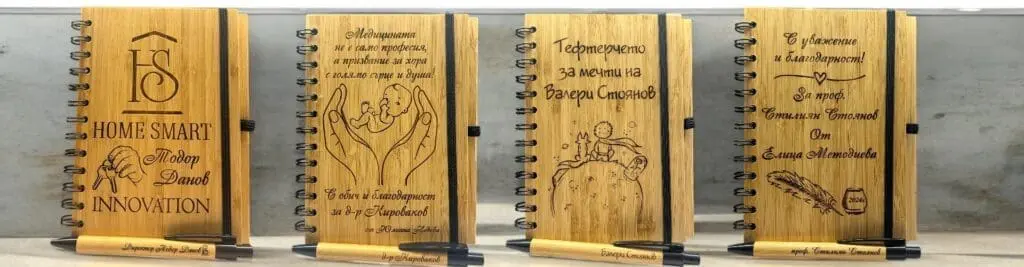 HS
HOME SMART
Тодор
Данов
INNOVATION
Директор Тодор Данов
Медицината
не е само професия,
а призвание за хора
с голямо сърце и душа!
С обич и благодарност
за д-р Кироваков
от Юлияна Недева
д-р Кироваков
Тефтерчето
за мечти на
Валери Стоянов
Валери Стоянов
С уважение
и благодарност!
За проф.
Стилиян Стоянов
От
Елица Методиева
2024г.
проф. Стилиян Стоянов